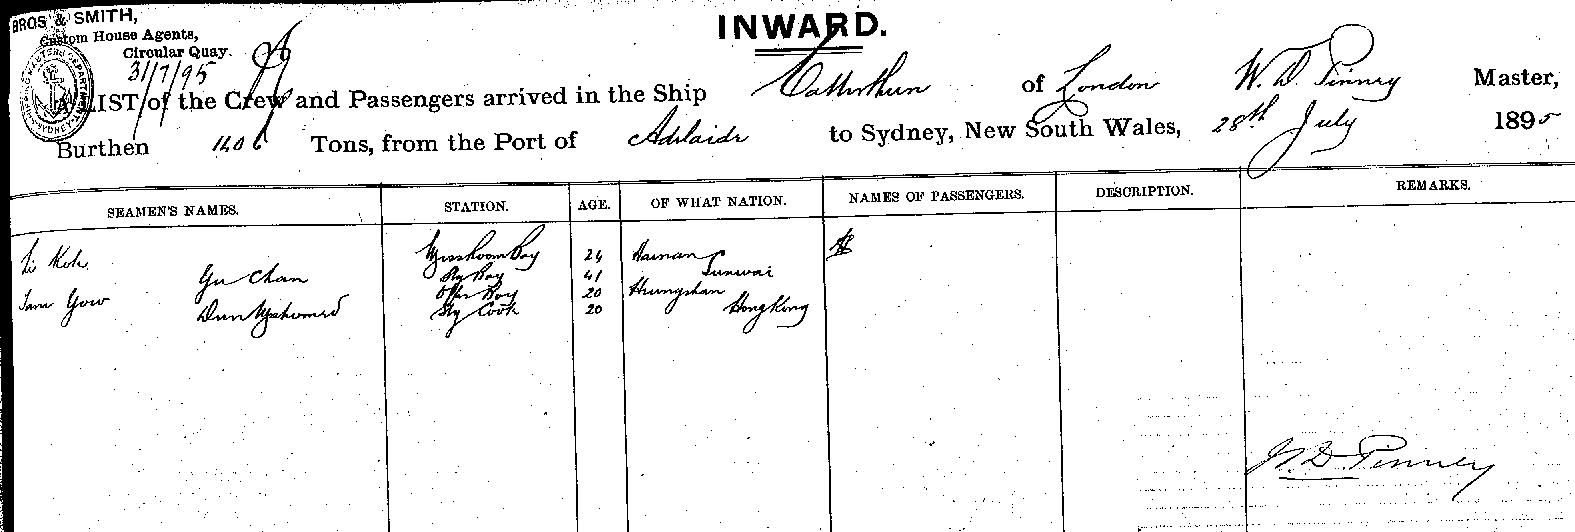 BROS & SMITH,
Custom House Agents,
Circular Quay.
31/7/95
INWARD.
A LIST of the Crew and Passengers arrived in the Ship Catterthun of London W. D. Pinney Master,
Burthen 1406 Tons, from the Port of Adelaide to Sydney, New South Wales, 28th July 1895
SEAMEN'S NAMES. STATION. AGE. OF WHAT NATION. NAMES OF PASSENGERS. DESCRIPTION. REMARKS.
Li Koh Messroom Boy 24 Hainan
Gu Chan Boy 41 Sunwai
Tam Yow Offrs Boy 20 Heungshan
Dun Mahomed Cook 20 HongKong
W. D. Pinney